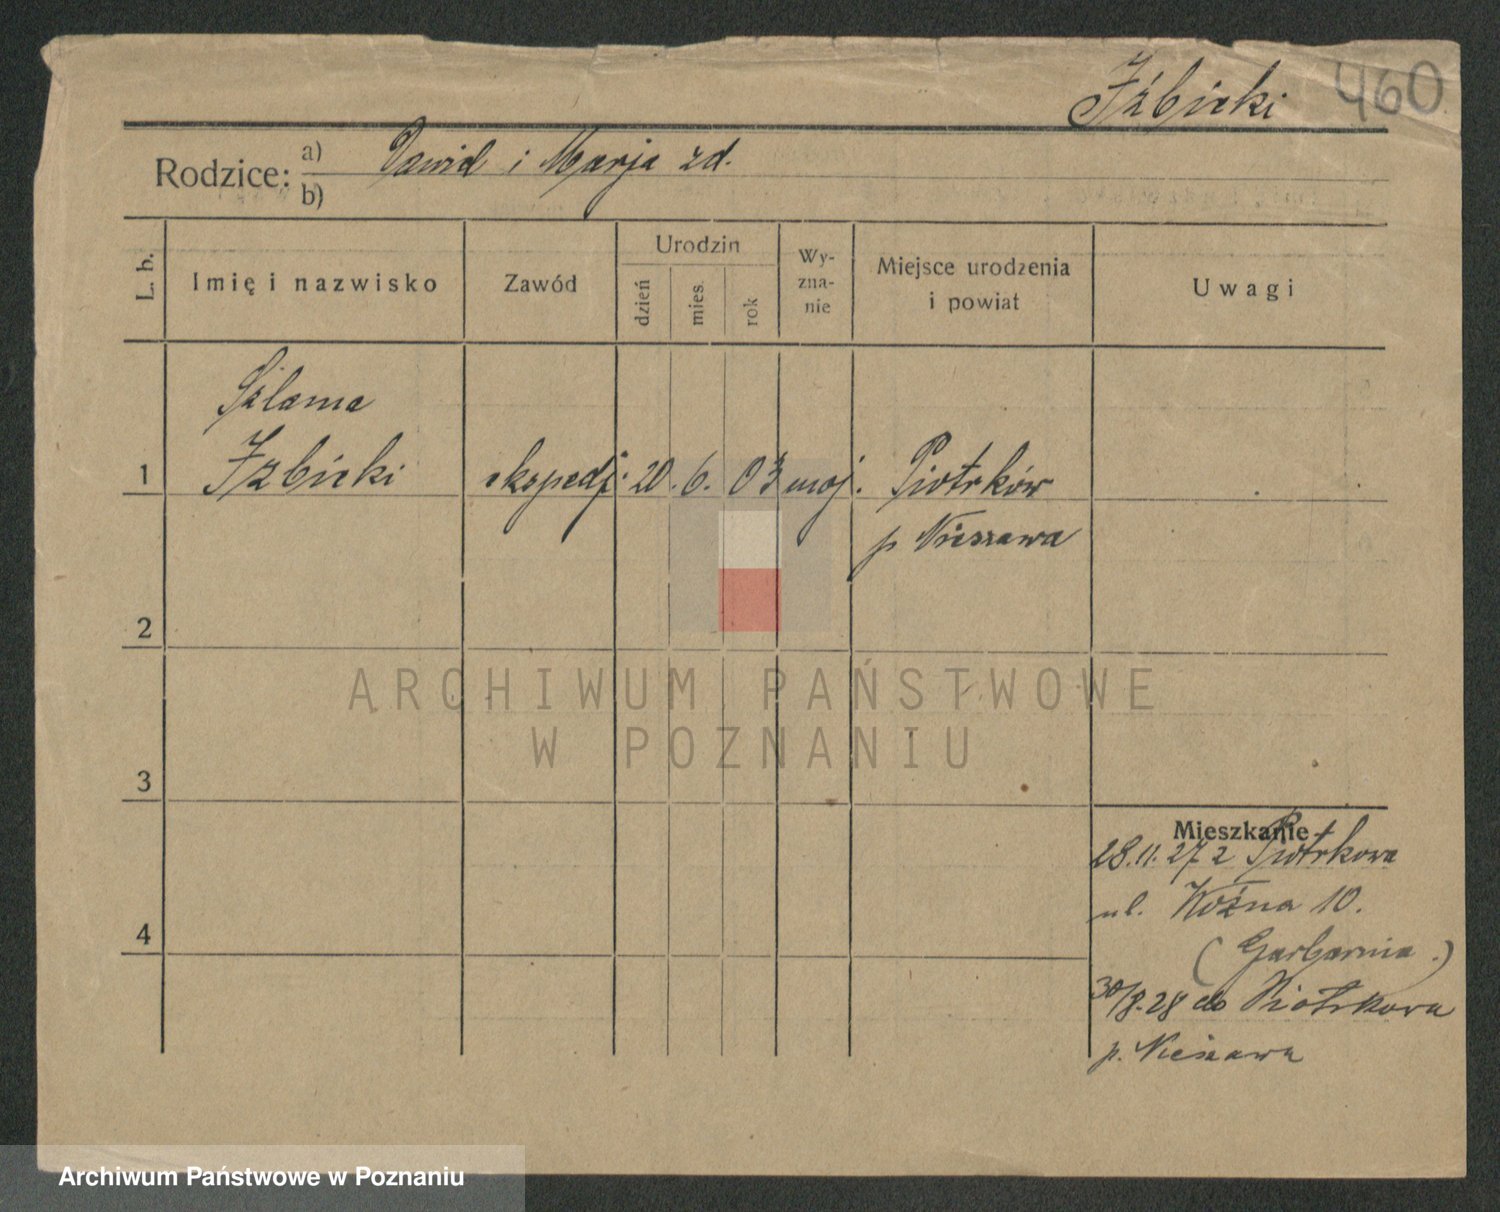 Iźbicki 460
Rodzice: a) Dawid i Marja zd.
b)
L. b. Imię i nazwisko Zawód Urodzin dzień mies. rok Wy-zna-nie Miejsce urodzenia i powiat Uwagi
Szlama
1 Izbicki ekspedj. 20. 6. 03 moj. Piotrków
p Nieszawa
2
ARCHIWUM PAŃSTWOWE
W POZNANIU
3
Mieszkanie
28.11.27 z Piotrkowa
4 ul. Woźna 10.
(Garbarnia.)
30/8.28 do Piotrkowa
p. Nieszawa
Archiwum Państwowe w Poznaniu